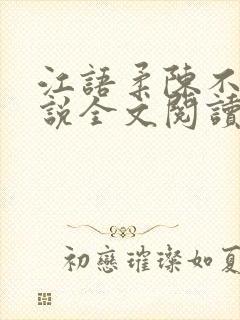 江語柔陳不
說全文閱讀
初戀璀璨如夏